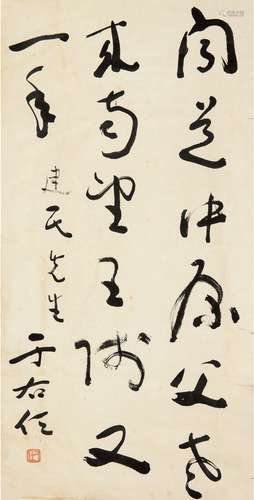 聞道中原父老
南望王師又
一年
建民先生
于右任